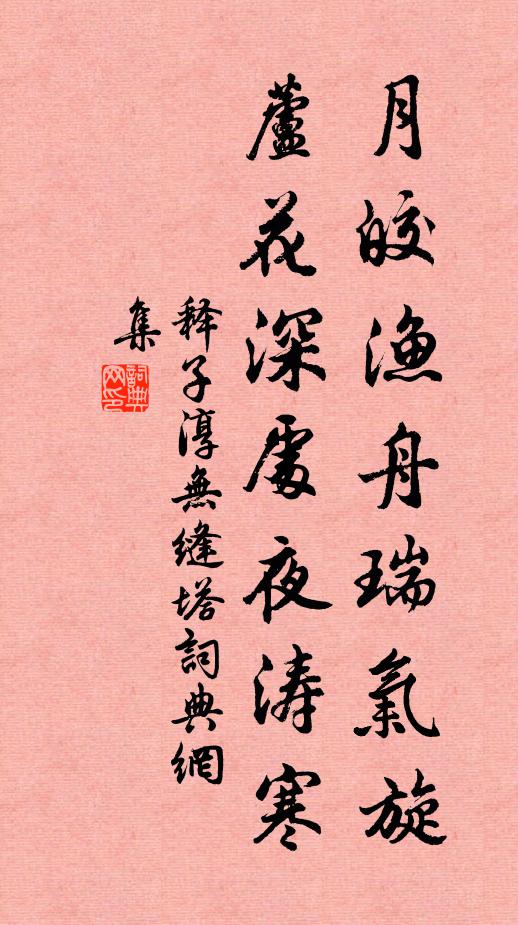 月皎渔舟瑞氣旋
蘆花深處夜涛寒
释子淳無縫塔詞典網
集
詞典
网印